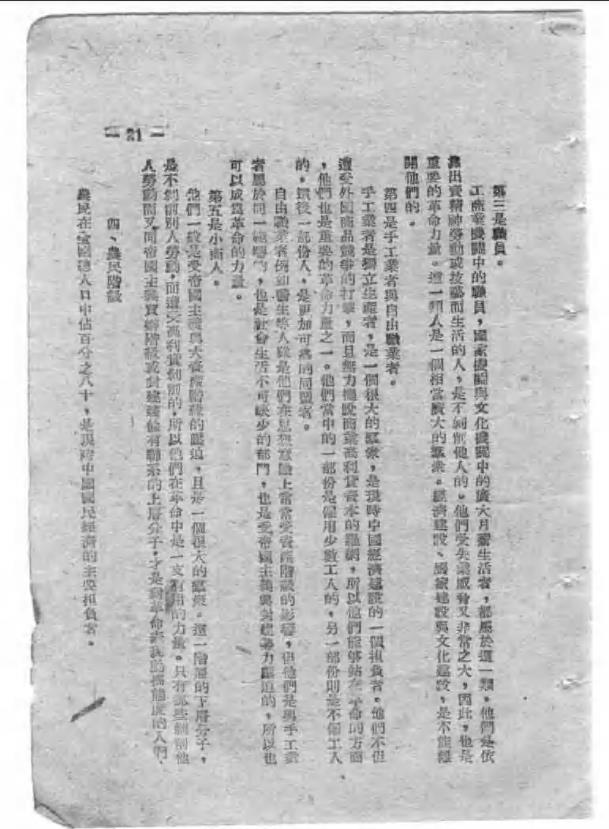 — 21 —
第三是職員。
工商業機關中的職員，國家機關與文化機關中的廣大月薪生活者，都屬於這一類。他們是依
靠出賣精神勞動或技藝而生活的人，是不剝削他人的。他們受失業威脅又非常之大，因此，也是
重要的革命力量。這一類人是一個相當廣大的羣衆。經濟建設、國家建設與文化建設，是不能離
開他們的。
第四是手工業者與自由職業者。
手工業者是獨立生產者，是一個很大的羣衆，是現時中國經濟建設的一個担負者。他們不但
遭受外國商品競爭的打擊，而且無力擺脫商業高利貸資本的羅網，所以他們能够站在革命的方面
，他們也是重要的革命力量之一。他們當中的一部份是僱用少數工人的，另一部份則是不僱工人
的。這後一部份人，是更加可靠的同盟者。
自由職業者例如醫生等人雖是他們在思想意識上常常受資產階級的影響，但他們是與手工業
者屬於同一範疇的，也是社會生活不可缺少的部門，也是受帝國主義與封建勢力壓迫的，所以也
可以成爲革命的力量。
第五是小商人。
他們一般是受帝國主義與大資產階級的壓迫，且是一個很大的羣衆。這一階層的下層分子，
是不剝削別人勞動，而遭受高利貸剝削的，所以他們在革命中是一支有用的力量。只有那些剝削他
人勞動而又同帝國主義買辦階級或封建
有聯系的上層分子，才是對革命
態度的人們。
四、農民階級
農民在全國總人口中佔百分之八十，是現時中國國民經濟的主要担負者。